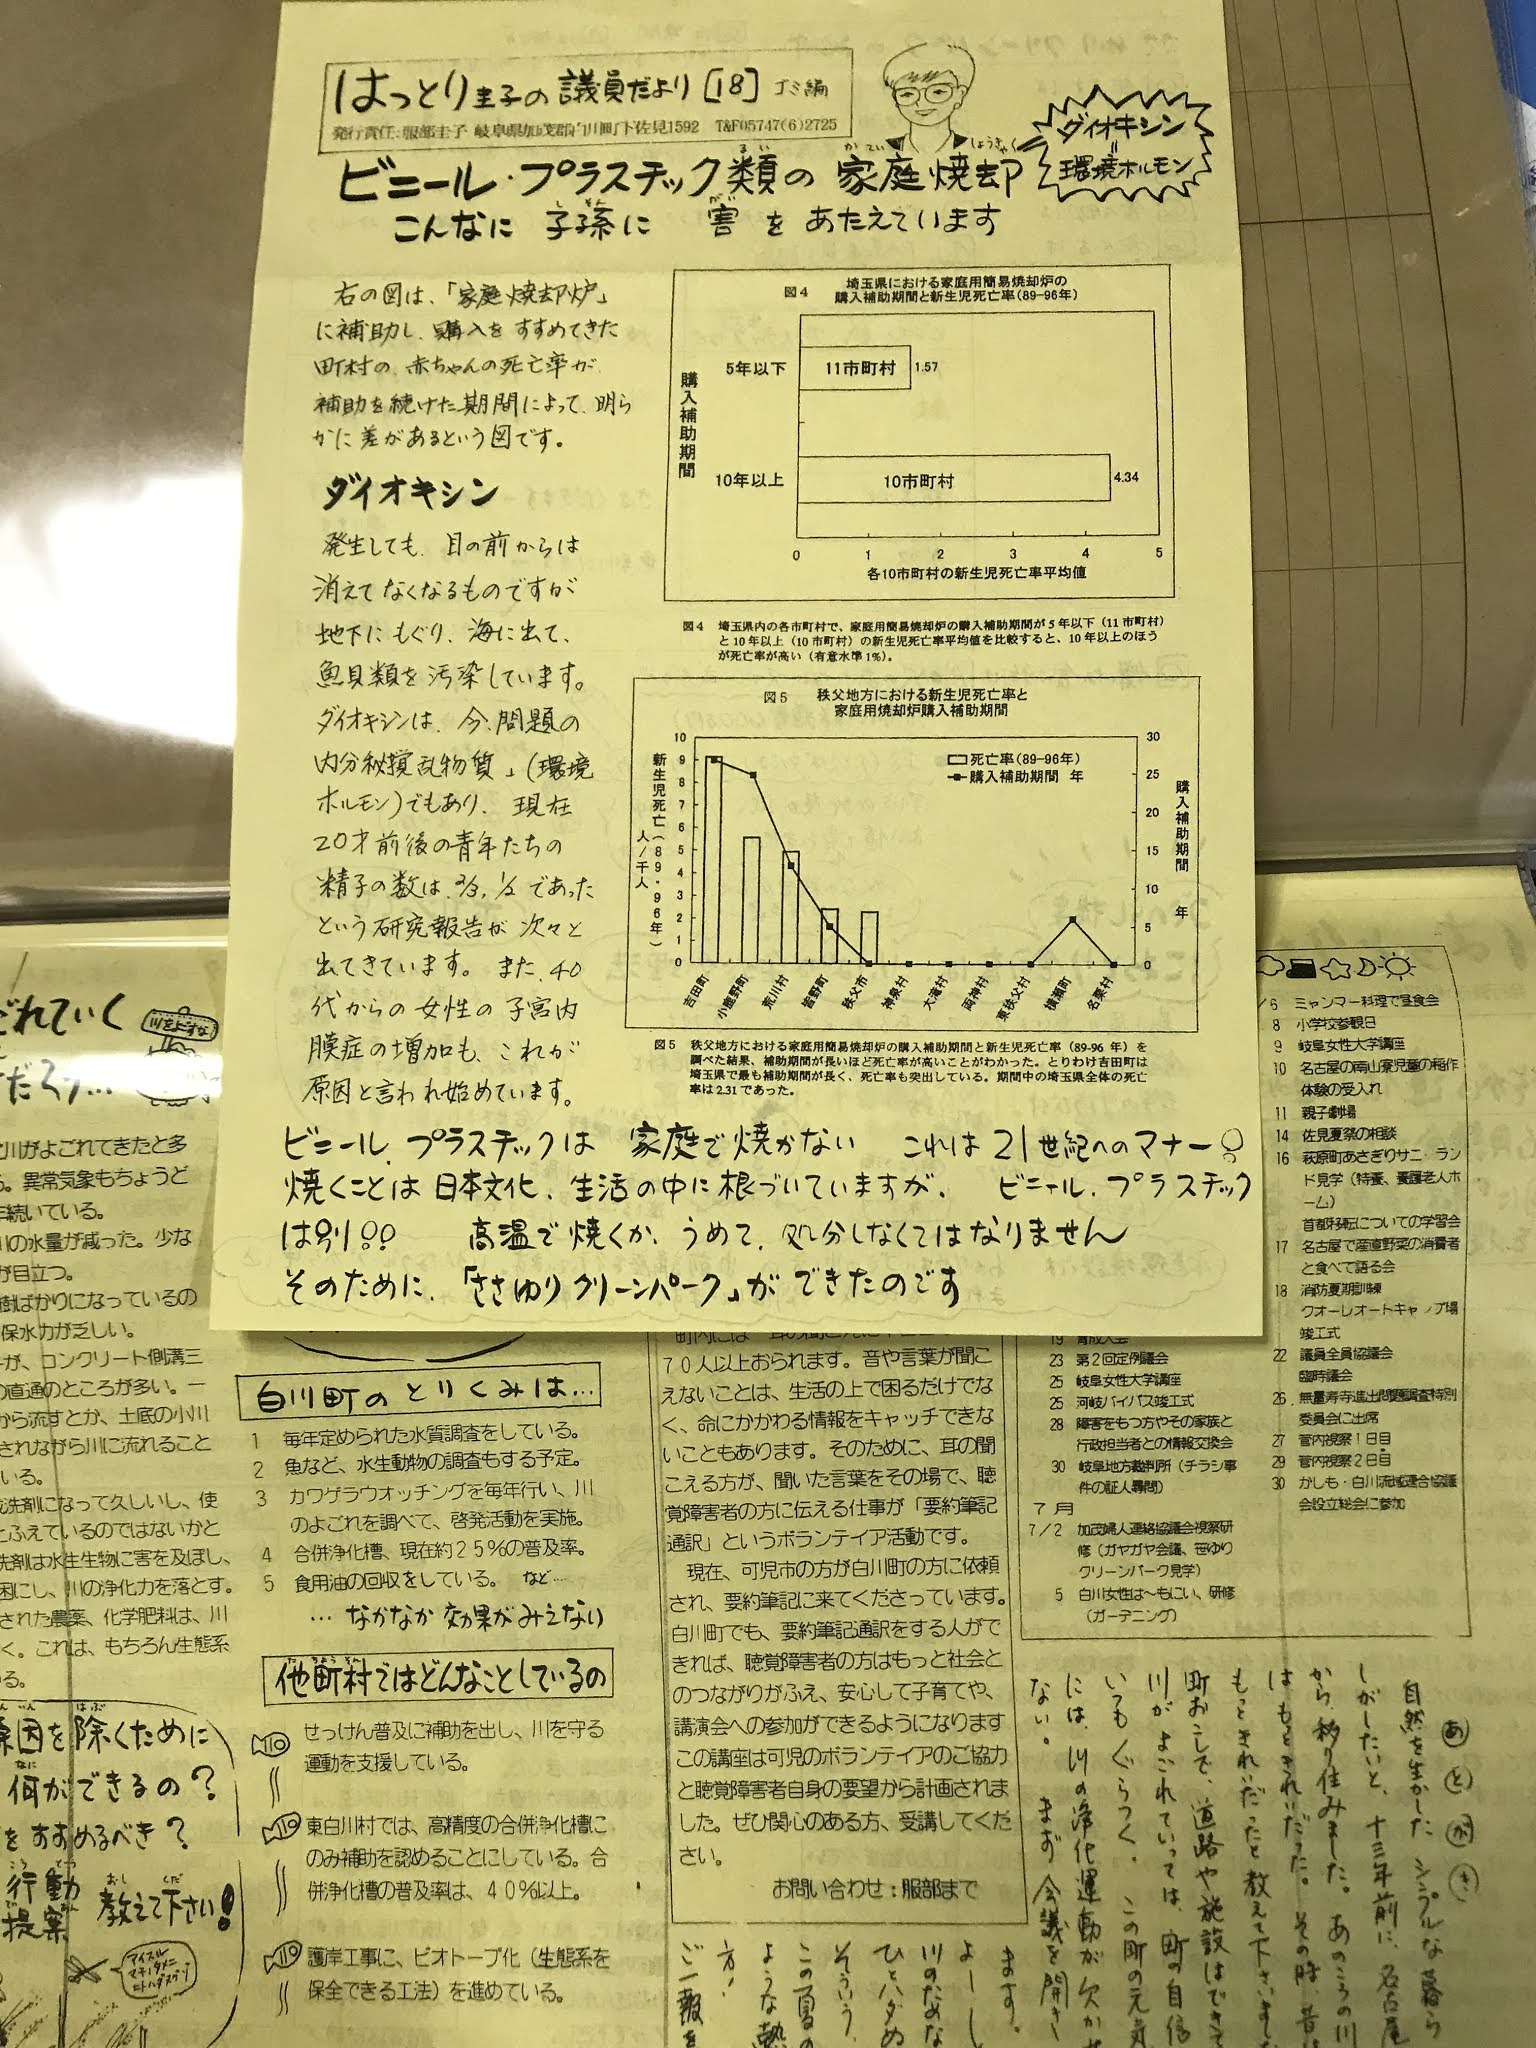 はっとり圭子の議員だより［18］ゴミ編
発行責任:服部圭子 岐阜県加茂郡白川町下佐見1592 T&F05747(6)2725
ダイオキシン
＝
環境ホルモン
ビニール・プラスチック類の家庭焼却
こんなに 子孫に 害をあたえています
右の図は、「家庭焼却炉」
に補助し、購入をすすめてきた
町村の、赤ちゃんの死亡率が
補助を続けた期間によって、明ら
かに差があるという図です。
ダイオキシン
発生しても、目の前からは
消えてなくなるものですが
地下にもぐり、海に出て、
魚貝類を汚染しています。
ダイオキシンは、今、問題の
内分秘撹乱物質」(環境
ホルモン)でもあり、現在
20才前後の青年たちの
精子の数は、2/3, 1/2 であった
という研究報告が次々と
出てきています。また、40
代からの女性の子宮内
膜症の増加も、これが
原因と言われ始めています。
図4 埼玉県における家庭用簡易焼却炉の
購入補助期間と新生児死亡率(89-96年)
購入補助期間
5年以下 11市町村 1.57
10年以上 10市町村 4.34
0 1 2 3 4 5
各10市町村の新生児死亡率平均値
図4 埼玉県内の各市町村で、家庭用簡易焼却炉の購入補助期間が5年以下（11市町村）
と10年以上（10市町村）の新生児死亡率平均値を比較すると、10年以上のほう
が死亡率が高い（有意水準1%）。
図5 秩父地方における新生児死亡率と
家庭用焼却炉購入補助期間
新生児死亡(89-96年)
人/千人
10
9
8
7
6
5
4
3
2
1
0
死亡率(89-96年)
購入補助期間 年
30
25
20
15
10
5
0
購入補助期間 年
吉田町 小鹿野町 荒川村 皆野町 秩父市 神泉村 大滝村 両神村 東秩父村 横瀬町 名栗村
図5 秩父地方における家庭用簡易焼却炉の購入補助期間と新生児死亡率（89-96 年）を
調べた結果、補助期間が長いほど死亡率が高いことがわかった。とりわけ吉田町は
埼玉県で最も補助期間が長く、死亡率も突出している。期間中の埼玉県全体の死亡
率は2.31であった。
ビニール、プラスチックは 家庭で焼かない これは21世紀へのマナー!!
焼くことは日本文化、生活の中に根づいていますが、 ビニール、プラスチック
は別!! 高温で焼くか、うめて、処分しなくてはなりません
そのために、「ささゆりクリーンパーク」ができたのです
川がよごれてきたと多
。異常気象もちょうど
続いている。
川の水量が減った。少な
が目立つ。
樹ばかりになっているの
保水力が乏しい。
が、コンクリート側溝三
の直通のところが多い。一
から流すとか、土底の小川
されながら川に流れること
いる。
洗剤になって久しいし、使
とふえているのではないかと
洗剤は水生生物に害を及ぼし、
困にし、川の浄化力を落とす。
された農薬、化学肥料は、川
く。これは、もちろん生態系
原因を除くために
何ができるの？
をすすめるべき？
行動
提案 教えて下さい!
白川町のとりくみは…
1 毎年定められた水質調査をしている。
2 魚など、水生動物の調査もする予定。
3 カワゲラウオッチングを毎年行い、川
のよごれを調べて、啓発活動を実施。
4 合併浄化槽、現在約25%の普及率。
5 食用油の回収をしている。 など…
…なかなか効果がみえない
他町村ではどんなことしているの
せっけん普及に補助を出し、川を守る
運動を支援している。
東白川村では、高精度の合併浄化槽に
のみ補助を認めることにしている。合
併浄化槽の普及率は、40%以上。
護岸工事に、ビオトープ化（生態系を
保全できる工法）を進めている。
70人以上おられます。音や言葉が聞こ
えないことは、生活の上で困るだけでな
く、命にかかわる情報をキャッチできな
いこともあります。そのために、耳の聞
こえる方が、聞いた言葉をその場で、聴
覚障害者の方に伝える仕事が「要約筆記
通訳」というボランテイア活動です。
現在、可児市の方が白川町の方に依頼
され、要約筆記に来てくださっています。
白川町でも、要約筆記通訳をする人がで
きれば、聴覚障害者の方はもっと社会と
のつながりがふえ、安心して子育てや、
講演会への参加ができるようになります
この講座は可児のボランテイアのご協力
と聴覚障害者自身の要望から計画されま
した。ぜひ関心のある方、受講してくだ
さい。
お問い合わせ：服部まで
19 育成大会
23 第2回定例議会
25 岐阜女性大学講座
25 河岐バイパス竣工式
28 障害をもつ方やその家族と
行政担当者との情報交換会
30 岐阜地方裁判所（チラシ事
件の証人尋問）
7月
7/2 加茂婦人連絡協議会視察研
修（ガヤガヤ会議、笹ゆり
クリーンパーク見学）
5 白川女性は〜もにい、研修
（ガーデニング）
6 ミャンマー料理で昼食会
8 小学校参観日
9 岐阜女性大学講座
10 名古屋の南山寮児童の稲作
体験の受入れ
11 親子劇場
14 佐見夏祭の相談
16 萩原町あさぎりサニーラン
ド見学（特養、養護老人ホ
ーム）
首都移転についての学習会
17 名古屋で産直野菜の消費者
と食べて語る会
18 消防夏期訓練
クオーレオートキャンプ場
竣工式
22 議員全員協議会
臨時議会
26 無量寿寺進出問題調査特別
委員会に出席
27 管内視察1日目
29 管内視察2日目
30 かしも・白川流域連合協議
会設立総会に参加
あとがき
自然を生かした シンプルな暮ら
しがしたいと、十三年前に、名古屋
から、移り住みました。あのころの川
は もっときれいだった。その時、昔は
もっときれいだったと教えて下さいました
町おこしで、道路や施設はできて
川がよごれていっては、町の自信
いてもぐらつく。この町の元気
には、川の浄化運動が欠かせ
ない。まず会議を開き
ます。